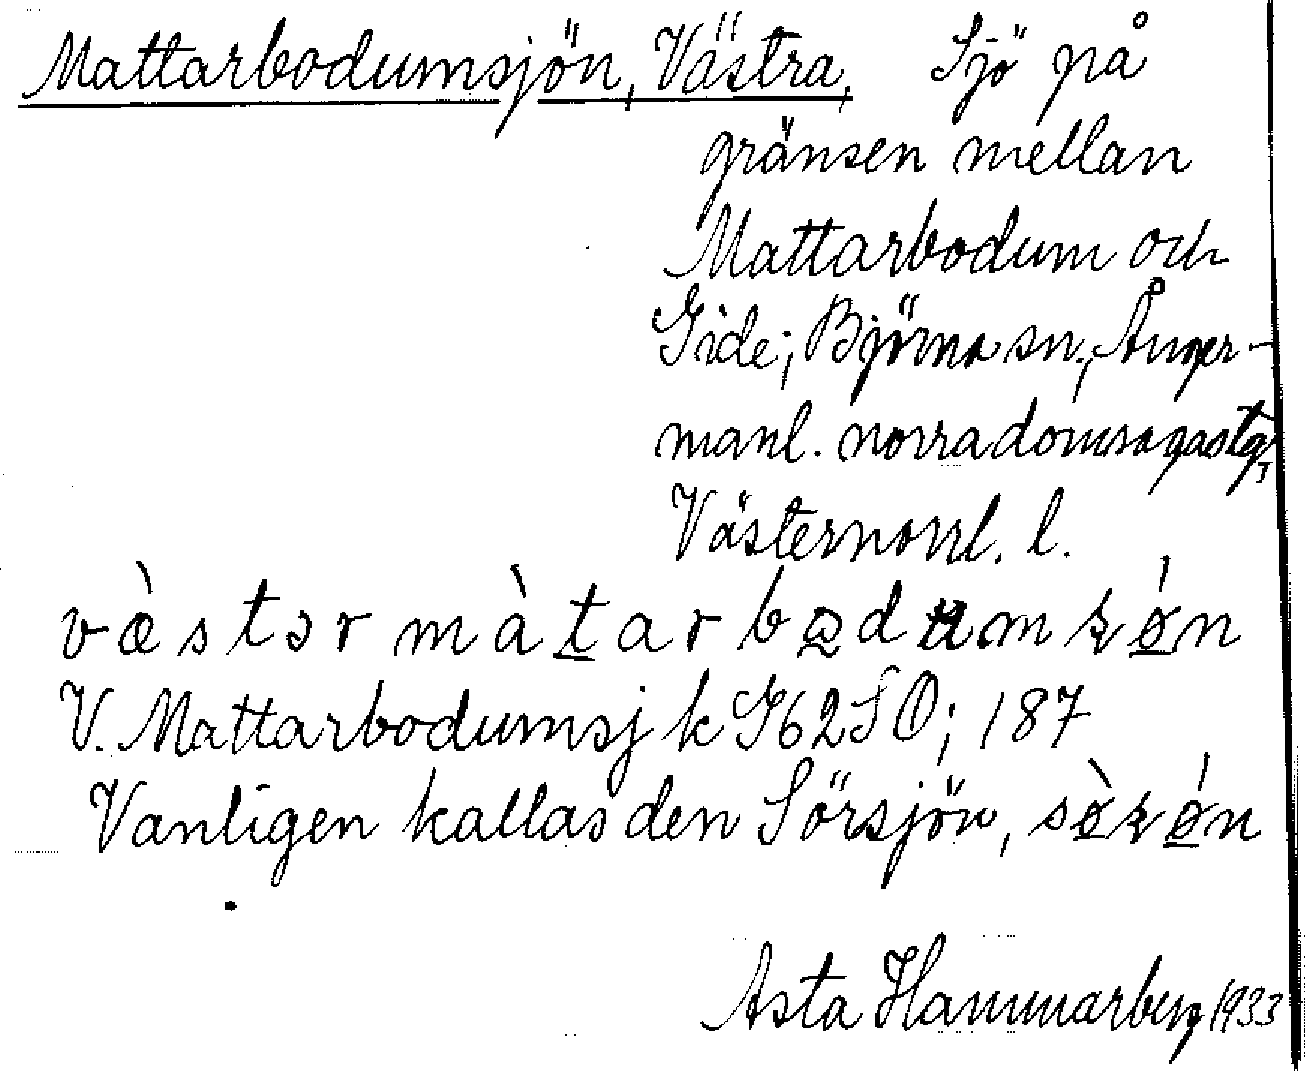 Mattarbodumsjön, Västra, Sjö på
gränsen mellan
Mattarbodum och
Gide; Björna sn, Ånger-
manl. norra domsagas tg,
Västernorrl. l.
væ̀stər màtarbodumʂøń
V. Mattarbodumsj k G62SO; 187
Vanligen kallas den Sörsjön, sø̀ʂøń
Asta Hammarberg 1933